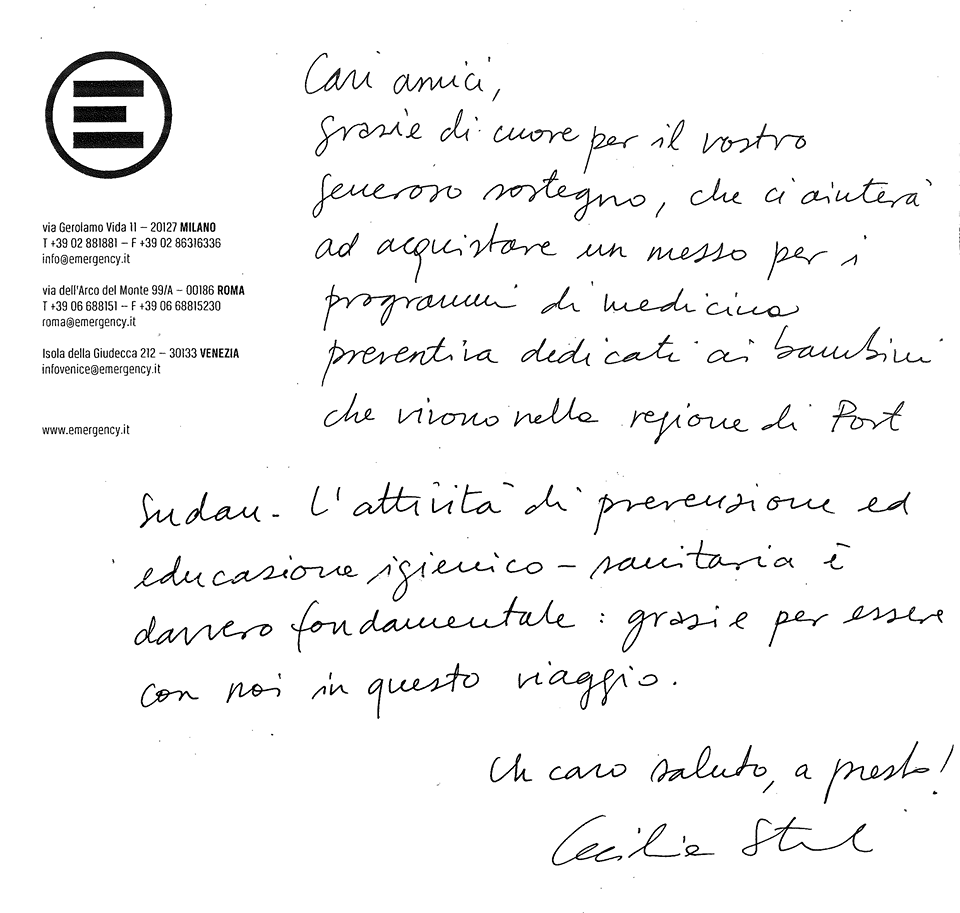 via Gerolamo Vida 11 – 20127 MILANO
T +39 02 881881 – F +39 02 86316336
info@emergency.it
via dell'Arco del Monte 99/A – 00186 ROMA
T +39 06 688151 – F +39 06 68815230
roma@emergency.it
Isola della Giudecca 212 – 30133 VENEZIA
infovenice@emergency.it
www.emergency.it
Cari amici,
grazie di cuore per il vostro
generoso sostegno, che ci aiuterà
ad acquistare un mezzo per i
programmi di medicina
preventiva dedicati ai bambini
che vivono nella regione di Port
Sudan. L'attività di prevenzione ed
educazione igienico – sanitaria è
davvero fondamentale : grazie per essere
con noi in questo viaggio.
Un caro saluto, a presto!
Cecilia